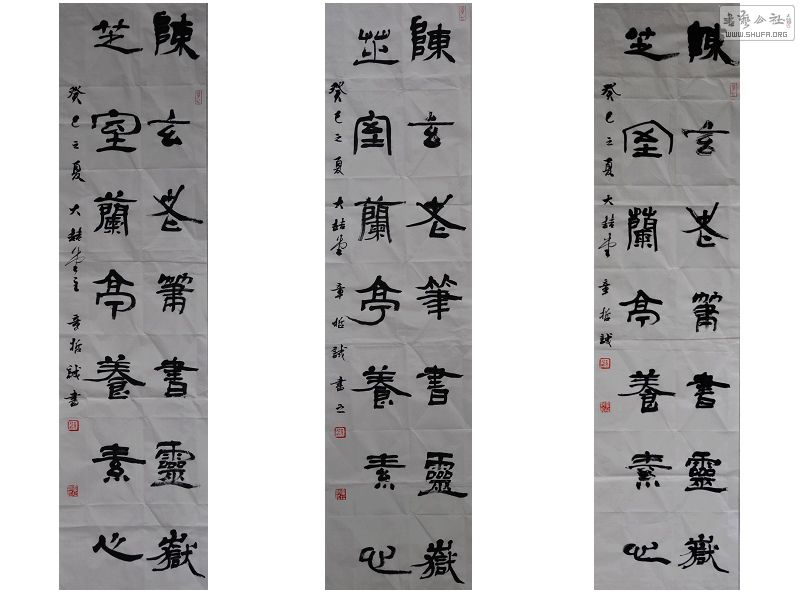 陳玄老筆書靈嶽
芝室蘭亭養素心
癸巳之夏 大喆堂主 章哲誠書
陳玄老筆書靈嶽
芝室蘭亭養素心
癸巳之夏 大喆堂 章哲誠書之
陳玄老筆書靈嶽
芝室蘭亭養素心
癸巳之夏 大喆堂 章哲誠
书艺公社
WWW.SHUFA.ORG